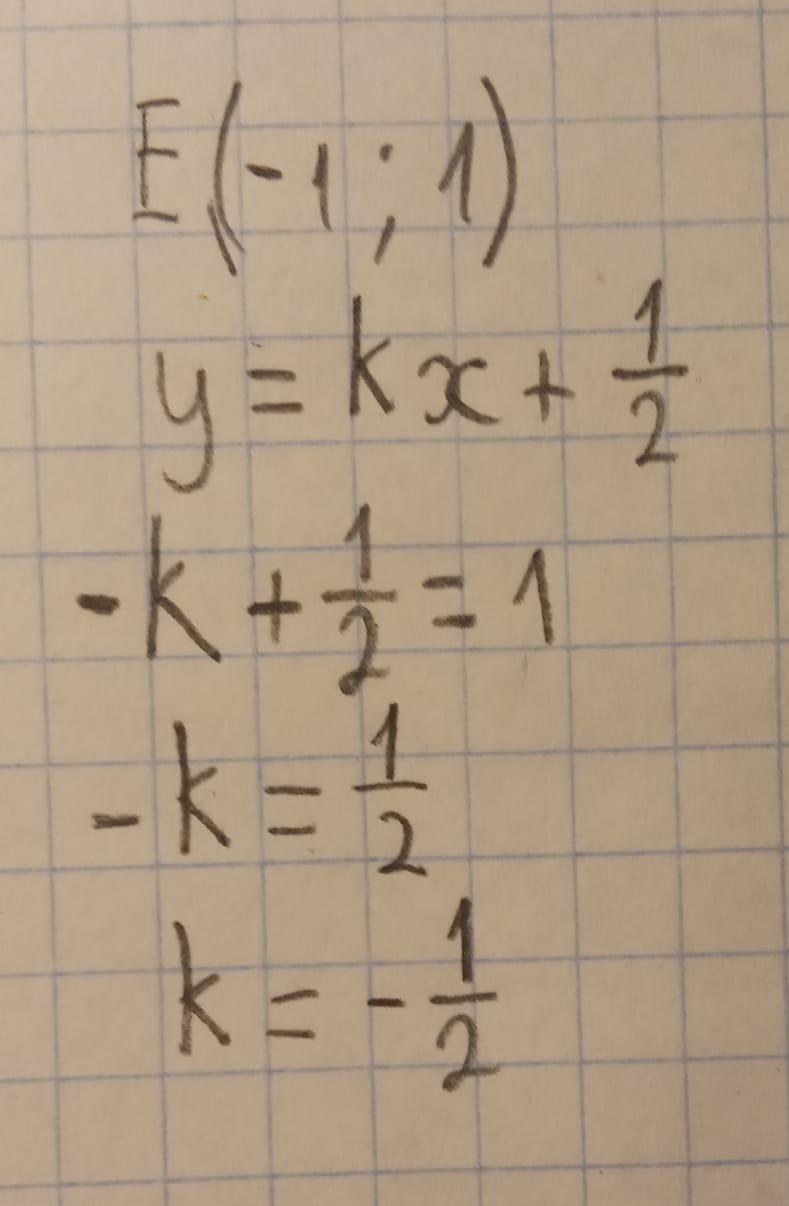 E(-1; 1)
y = kx + 1/2
-k + 1/2 = 1
-k = 1/2
k = -1/2